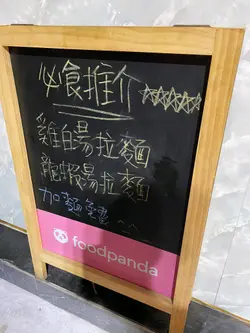 必食推介☆☆☆☆☆
雞白湯拉麵
龍蝦湯拉麵
加麵免費~~
foodpanda